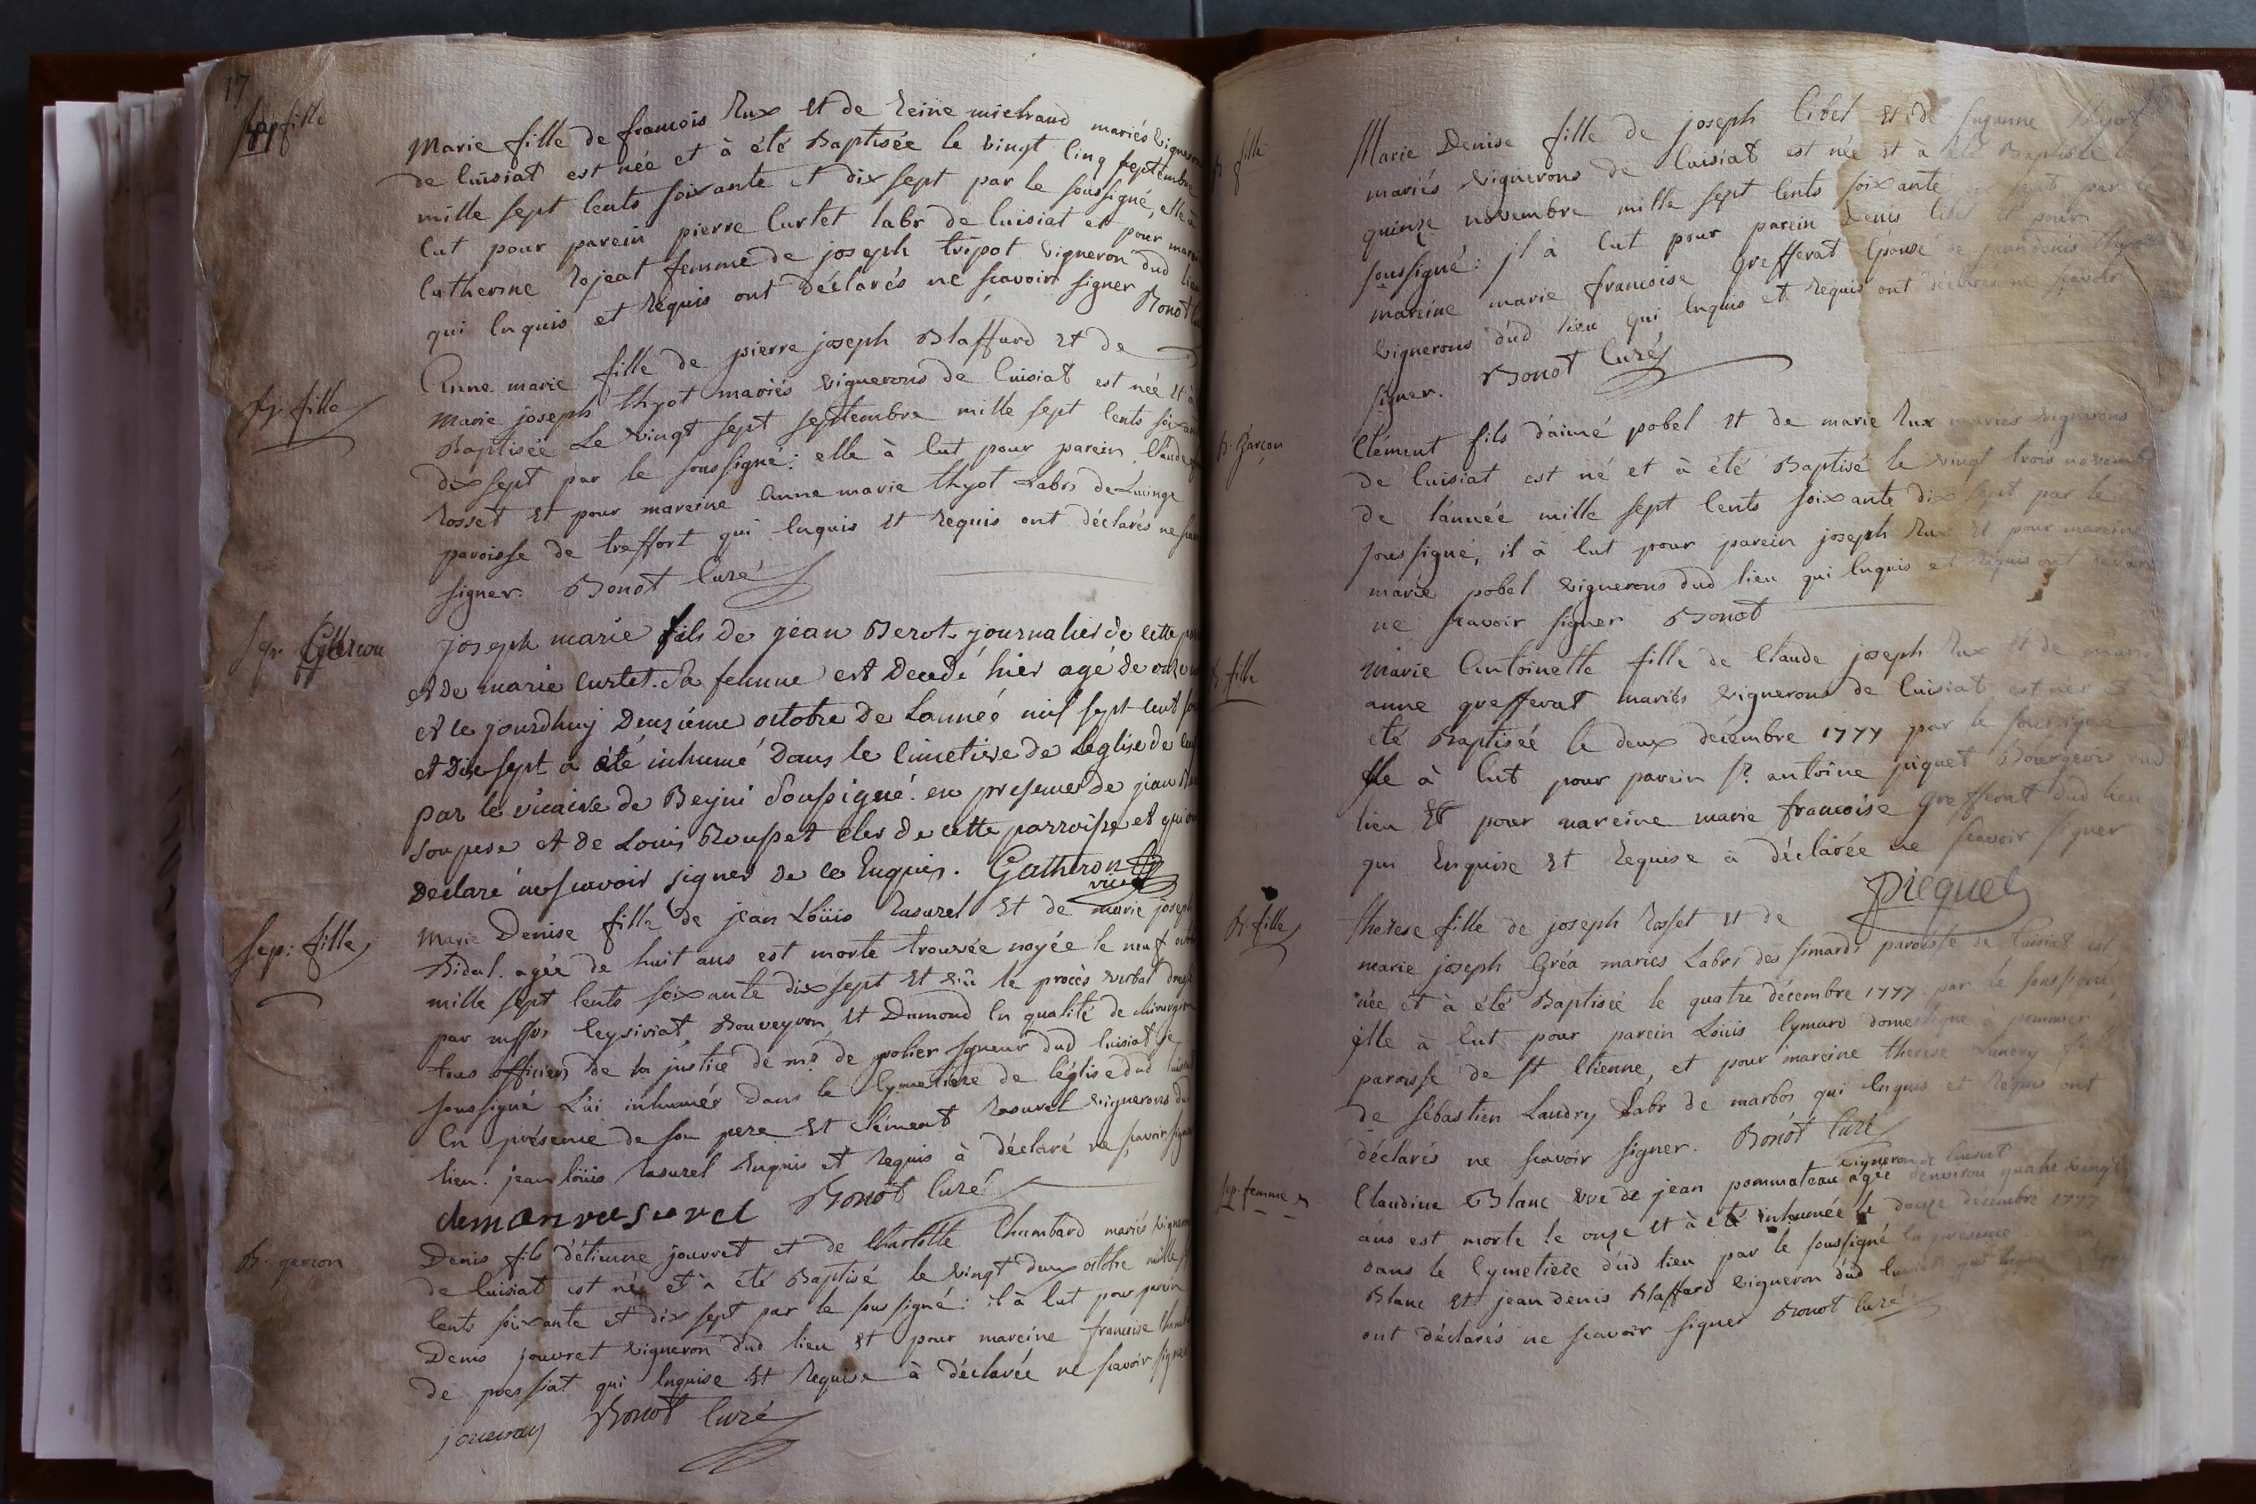 17
Bap fille
Marie fille de francois Rux et de Reine michaud mariés vignerons
de Cuisiat est née et à été Baptisée le vingt Cinq septembre
mille sept Cents soixante et dix sept par le soussigné, elle à
Eut pour parein pierre Curtet labr de Cuisiat et pour mareine
Catherine Rojeat femme de joseph tripot vigneron dud lieu
qui Enquis et Requis ont déclarés ne scavoir signer Bonot Curé
B. fille
Anne marie fille de pierre joseph Blaffard et de
Marie joseph thyot mariés vignerons de Cuisiat est née et à
Baptisée Le vingt sept septembre mille sept Cents soixante
dix sept par le soussigné: elle à Eut pour parein Claude
Rosset et pour mareine Anne marie thyot Labrs de
paroisse de treffort qui Enquis et Requis ont déclarés ne scavoir
signer. Bonot Curé
Sep. Garcon
joseph marie fils de jean Berot journalier de cette
et de marie curtet Sa femme est Decedé hier agé de
et ce jourdhuy Deuzième octobre de Lannée mil sept cent
et Dix sept a été inhumé Dans le Cimetière de Leglise de
par le vicaire de Beyni Soussigné. en presence de jean
Son pere et de Louis Rousset cler de cette parroisse et qui ont
Declaré ne scavoir signer de ce Enquis. Gatheron
vic
Sep: fille
Marie Denise fille de jean Loüis Rasurel et de marie joseph
Bidal. agée de huit ans est morte trouvée noyée le neuf
mille sept Cents soixante dix sept et vû le procès verbal dressé
par messrs Leysiriat, Bouveyron, et Dumond En qualité de chirurgien
tous officiers de la justice de mr de polier sgneur dud Cuisiat Je
soussigné L'ai inhumée dans le Cymetiere de l'église dud
En présence de son pere et Clément Rasurel vignerons dud
lieu. jean loüis Rasurel Enquis et Requis à déclaré ne scavoir signer
clemanrasurel Bonot Curé
B. garcon
Denis fils d'étienne jouvret et de Charlotte Chambard mariés vignerons
de Cuisiat est né et à été Baptisé le vingt deux octobre mille sept
Cents soixante et dix sept par le soussigné: il à Eut pour parein
Denis jouvret vigneron dud lieu et pour mareine francoise
de pressiat qui Enquise et Requise à déclarée ne scavoir signer
Bonot Curé
B. fille
Marie Denise fille de joseph Cibel et de Suzanne thyot
mariés vignerons de Cuisiat est née et à été Baptisée le
quinze novembre mille sept Cents soixante dix sept par le
soussigné: il à Eut pour parein Denis Cibel et pour
mareine marie francoise Grefferat Epouse de jean denis
vignerons dud lieu qui Enquis et Requis ont déclarés ne scavoir
signer. Bonot Curé
B. garcon
Clément fils d'aimé pobel et de marie Rux mariés vignerons
de Cuisiat est né et à été Baptisé le vingt trois novembre
de l'année mille sept Cents soixante dix sept par le
soussigné, il à Eut pour parein joseph Rux et pour mareine
marie pobel vignerons dud lieu qui Enquis et Requis ont
ne scavoir signer Bonot
B. fille
Marie Antoinette fille de Claude joseph Rux et de marie
anne grefferat mariés vignerons de Cuisiat est née et
été Baptisée le deux décembre 1777 par le soussigné
Elle à Eut pour parein Sr. antoine piquet Bourgeois dud
lieu et pour mareine marie francoise Grefferat dud lieu
qui Enquise et Requise à déclarée ne scavoir signer
Picquet
B. fille
thérèse fille de joseph Rosset et de
marie joseph Gréa mariés Labrs des simards paroisse de Cuisiat est
née et à été Baptisée le quatre décembre 1777 par le soussigné,
elle à Eut pour parein Loüis Cymard domestique à pommier
paroisse de St Etienne, et pour mareine thérèse Landry fille
de sébastien Landry Labr de marbos qui Enquis et Requis ont
déclarés ne scavoir signer. Bonot Curé
Sep. femme
vigneron de Cuisiat
Claudine Blanc vve de jean pommateau agée denviron quatre vingt
ans est morte le onze et à été inhumée le douze décembre 1777
dans le Cymetiere dud lieu par le soussigné En présence
Blanc et jean denis Blaffard vigneron dud Cuisiat qui Enquis
ont déclarés ne scavoir signer Bonot Curé